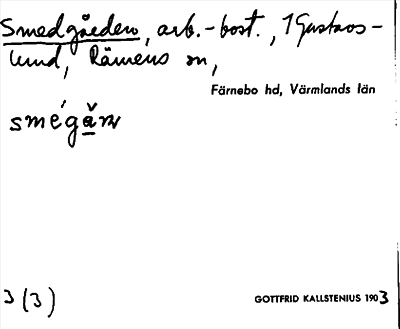 Smedgården, arb.-bost., 1 Gustavs-
lund, Rämens sn,
Färnebo hd, Värmlands län
3 (3)
GOTTFRID KALLSTENIUS 1903